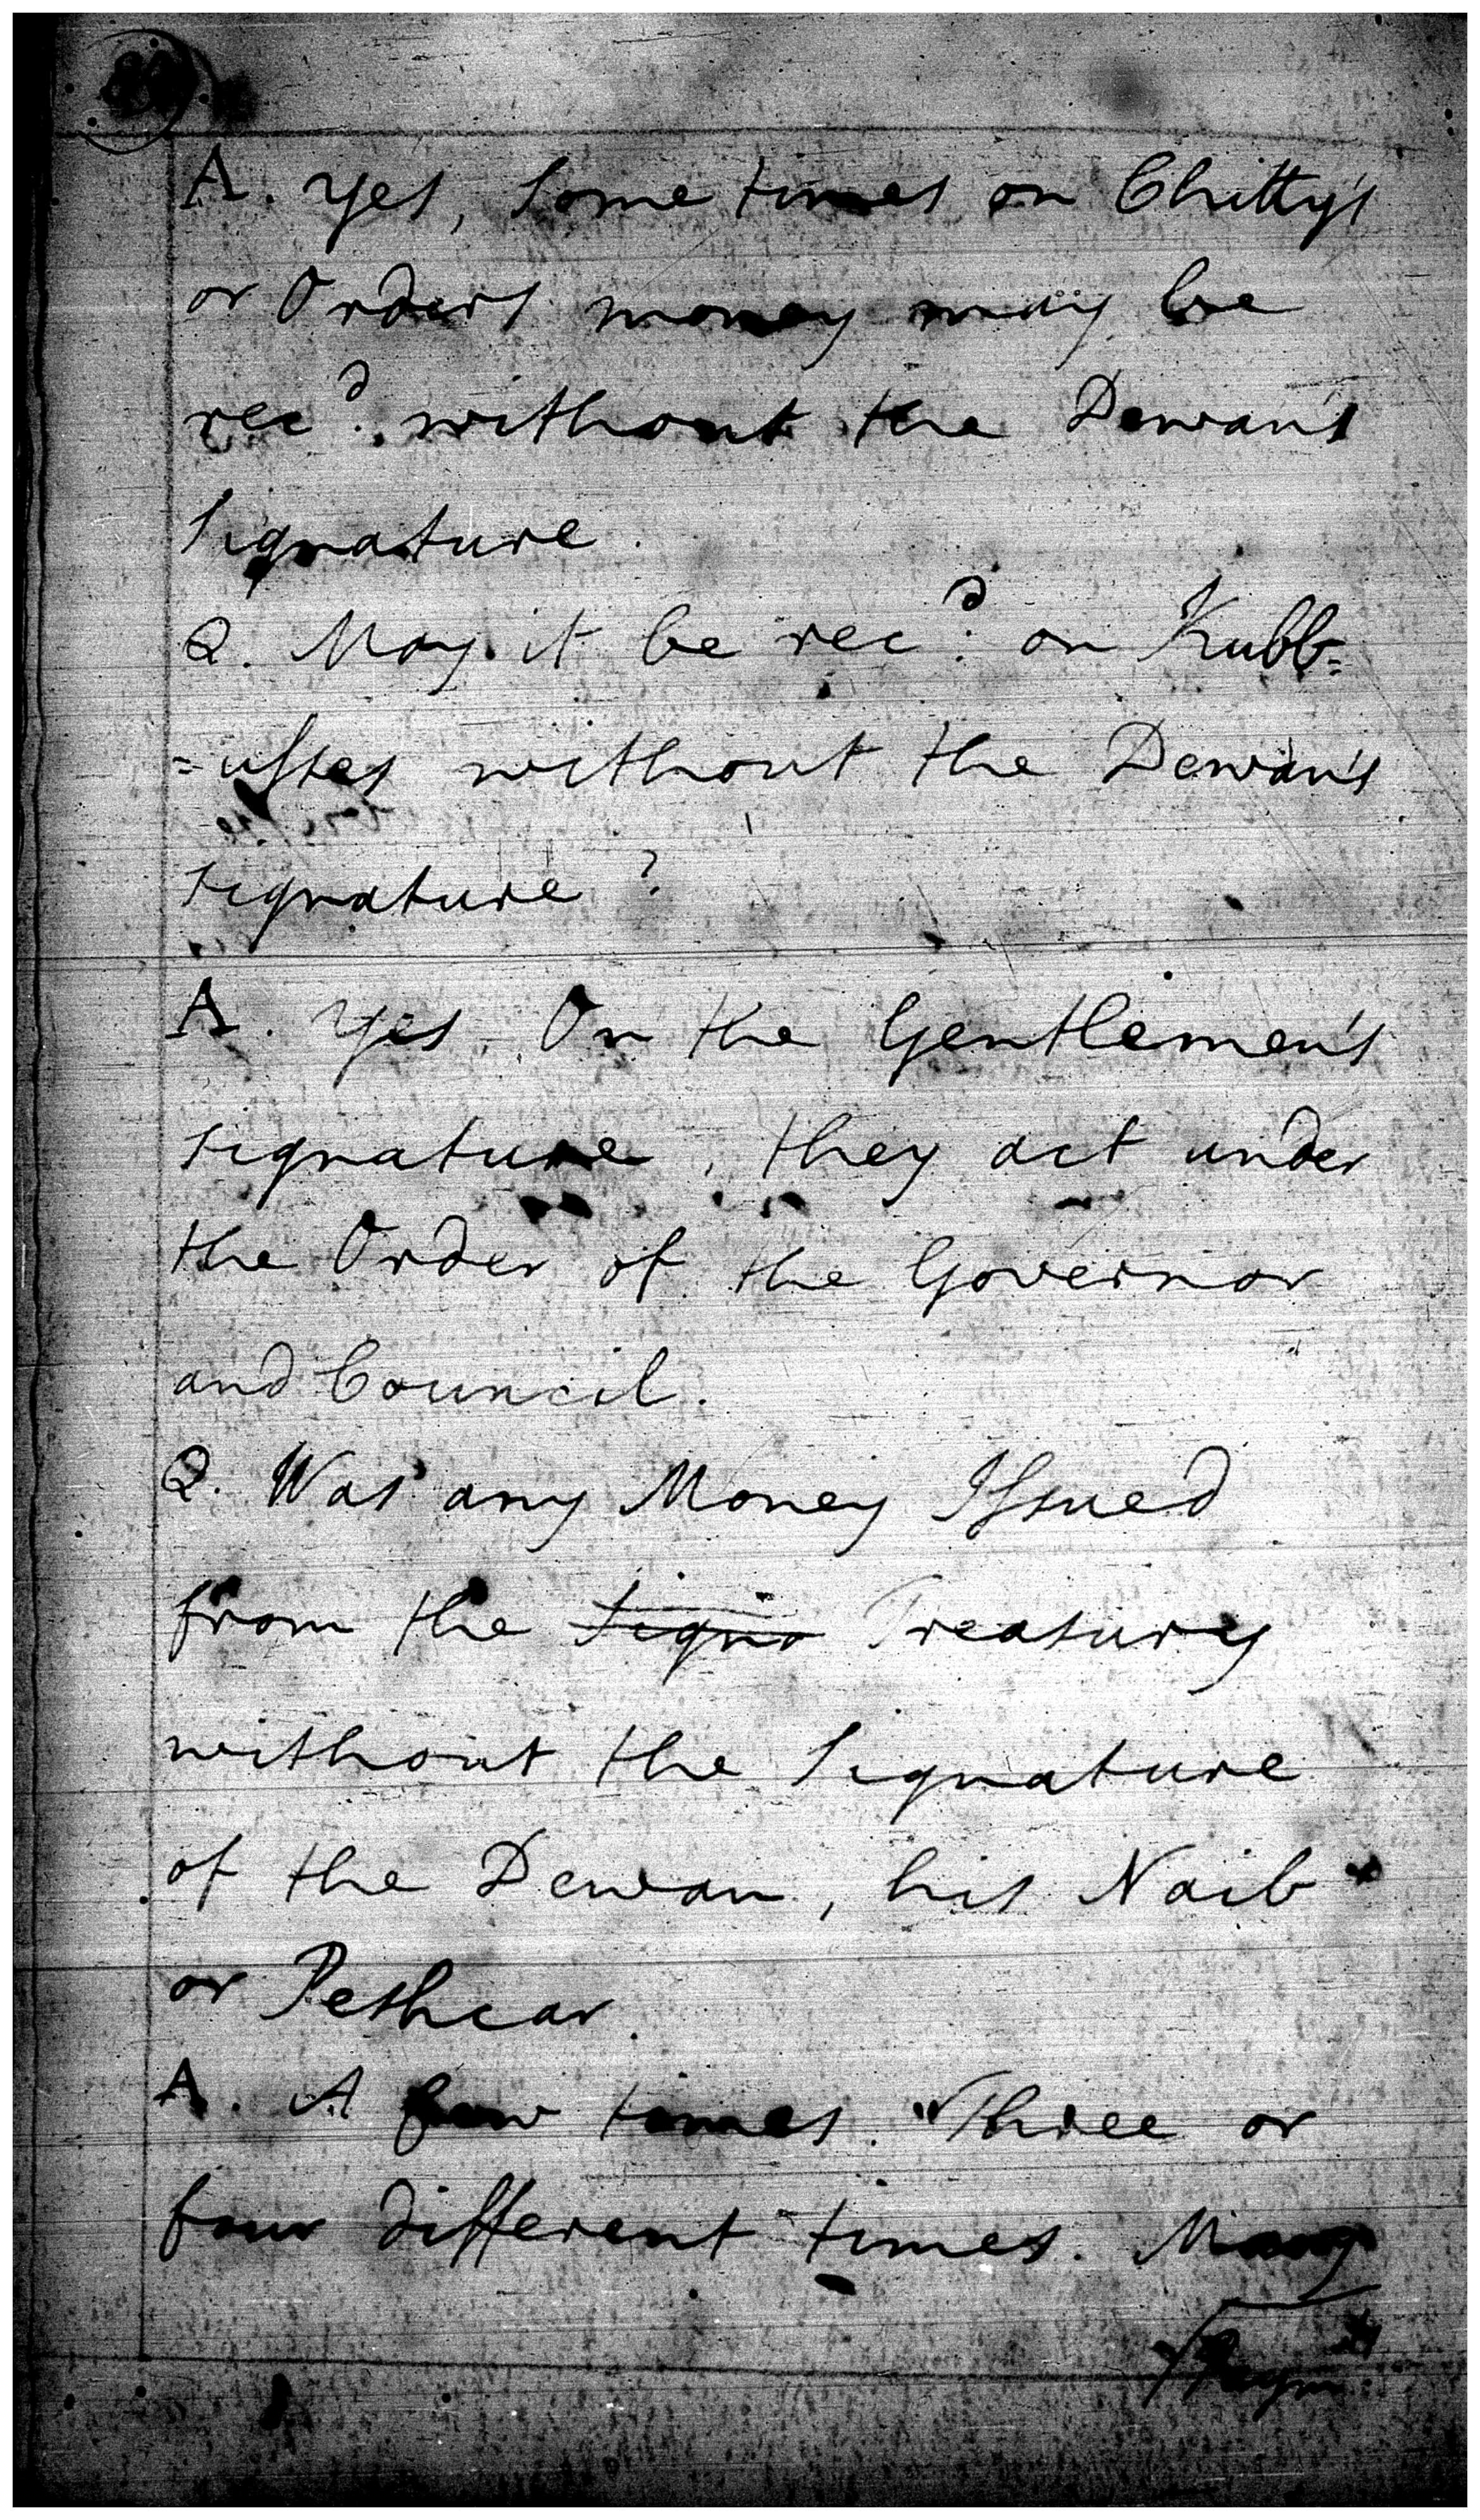 A. Yes, Some times on Chitty's
or Orders money may be
rec.d without the Dewan's
Signature.
Q. May it be rec.d on Kubb=
=usses without the Dewan's
signature?
A. Yes. On the Gentlemen's
signature, they act under
the Order of the Governor
and Council.
Q. Was any Money Issued
from the Signa Treasury
without the Signature
of the Dewan, his Naib
or Peshcar.
A. A few times. Three or
four different times. Many